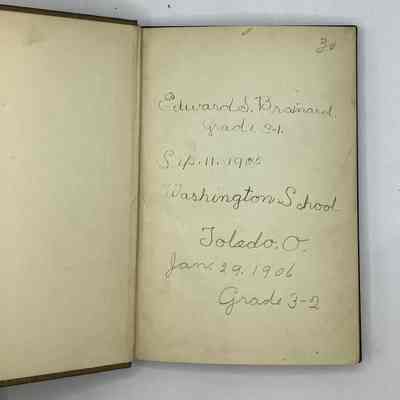 30
Edward S. Brainard.
Grade 3-1.
Sep. 11. 1905
Washington School
Toledo. O.
Jan. 29. 1906
Grade 3-2